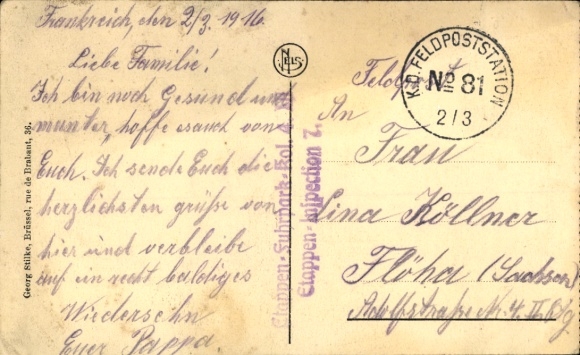 Frankreich, den 2/3. 1916.
Liebe Familie!
Ich bin noch Gesund und
munter, hoffe es auch von
Euch. Ich sende Euch die
herzlichsten grüße von
hier und verbleibe
auf ein recht baldiges
Wiedersehn
Euer Pappa.
Georg Stilke, Brüssel, rue de Brabant, 36.
NELS
Etappen-Fuhrpark-Kol.
Etappen-Inspection 7.
K.D. FELDPOSTSTATION
No 81
2/3
Feldpost
An
Frau
Lina Köllner
Flöha (Sachsen)
Adolfstraße Nr. 4. II.